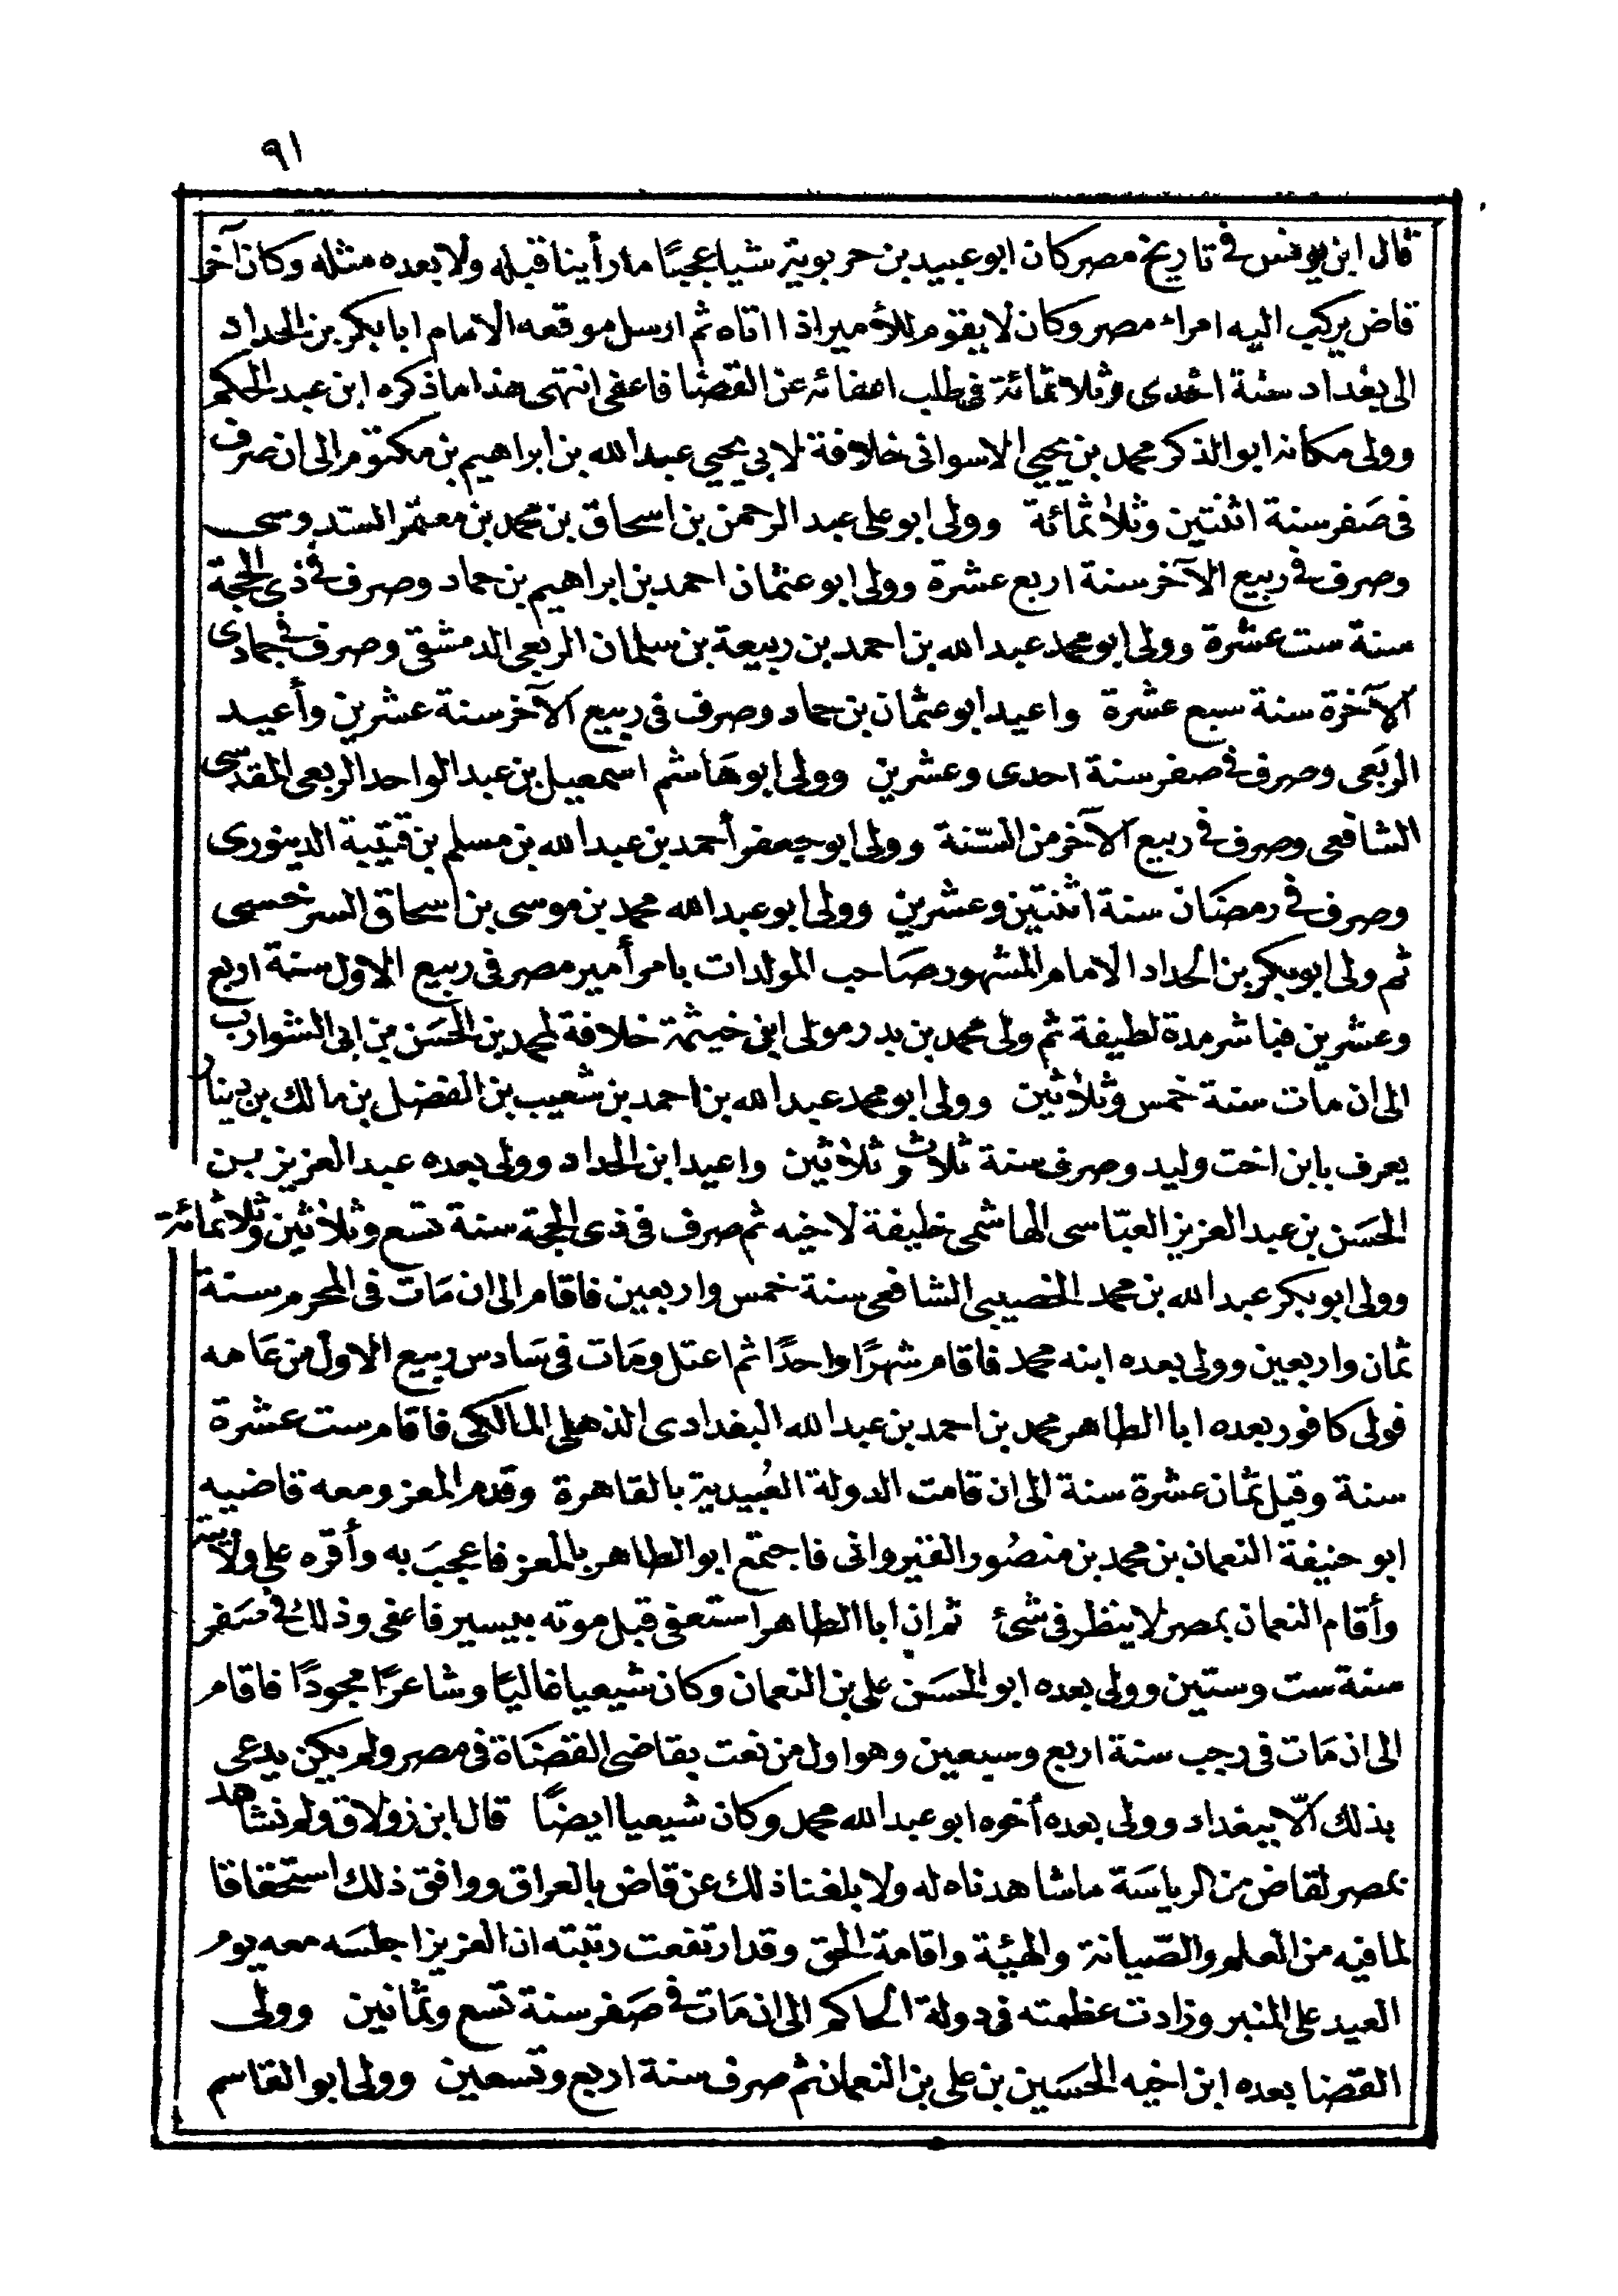 ٩١
قال ابن يونس في تاريخ مصر كان ابو عبيد بن حربوية شيا عجيبًا ما رأينا قبله ولا بعده مثله وكان آخر
قاض يركب اليه امراء مصر وكان لا يقوم للأمير اذا اتاه ثم ارسل موقعه الامام ابا بكر بن الحداد
الى بغداد سنة احدى وثلاثمائة في طلب اعفائه عن القضا فاعفى انتهى هذا ما ذكره ابن عبد الحكم
وولى مكانه ابو الذكر محمد بن يحيى الاسوانى خلافة لابي يحيى عبد الله بن ابراهيم بن مكتوم الى ان صرف
فى صَفر سنة اثنتين وثلاثمائة وولى ابو على عبد الرحمن بن اسحاق بن محمد بن معتمر السدوسى
وصرف في ربيع الآخر سنة اربع عشرة وولى ابو عثمان احمد بن ابراهيم بن حماد وصرف في ذى الحجة
سنة ست عشرة وولى ابو محمد عبد الله بن احمد بن ربيعة بن سلمان الربعى الدمشقى وصرف في جمادى
الآخرة سنة سبع عشرة واعيد ابو عثمان بن حماد وصرف فى ربيع الآخر سنة عشرين وأعيد
الربَعى وصرف في صفر سنة احدى وعشرين وولى ابو هَاشم اسمعيل بن عبد الواحد الربعى المقدسى
الشافعى وصرف في ربيع الآخر من السّنة وولى ابو جعفر أحمد بن عبد الله بن مسلم بن قتيبة الدينورى
وصرف في رمضَان سنة اثنتين وعشرين وولى ابو عبد الله محمد بن موسى بن اسحاق السرخسى
ثم ولى ابو بكر بن الحداد الامام المشهور صَاحب المولدات بامر أمير مصر فى ربيع الاول سنة اربع
وعشرين فباشر مدة لطيفة ثم ولى محمد بن بدر مولى ابى خيثمة خلافة لمحمد بن الحسَن بن ابى الشوارب
الى ان مات سنة خمس وثلاثين وولى ابو محمد عبد الله بن احمد بن شعيب بن الفضل بن مالك بن دينار
يعرف بابن اخت وليد وصرف سنة ثلاث وثلاثين واعيد ابن الحداد وولى بعده عبد العزيز بن
الحسَن بن عبد العزيز العبّاسى الهاشمى خليفة لاخيه ثم صرف فى ذى الحجة سنة تسع وثلاثين وثلاثمائة
وولى ابو بكر عبد الله بن محمد الخصيبى الشافعى سنة خمس واربعين فاقام الى ان مَات فى المحرم سنة
ثمان واربعين وولى بعده ابنه محمد فاقام شهرًا واحدًا ثم اعتل ومَات فى سَادس ربيع الاول من عَامه
فولى كافور بعده ابا الطاهر محمد بن احمد بن عبد الله البغدادى الذهلى المالكى فاقام ست عشرة
سنة وقيل ثمان عشرة سنة الى ان قامت الدولة العُبيدية بالقاهرة وقدم المعز ومعه قاضيه
ابو حنيفة النعمان بن محمد بن منصُور القيروانى فاجتمع ابو الطاهر بالمعز فاعجبَ به وأقره على ولايته
وأقام النعمان بمصر لا ينظر فى شئ ثم ان ابا الطاهر استعفى قبل موته بيسير فاعفى وذلك في صَفر
سنة ست وستين وولى بعده ابو الحسَن على بن النعمان وكان شيعيا غاليًا وشاعرًا مجودًا فاقام
الى ان مَات فى رجب سنة اربع وسبعين وهو اول من نعت بقاضى القضَاة فى مصر ولم يكن يدعى
بذلك الّا ببغداد وولى بعده أخوه ابو عبد الله محمد وكان شيعيا ايضًا قال ابن زولاق ولم نشاهد
بمصر لقاض من الرياسَة ما شاهدناه له ولا بلغنا ذلك عن قاض بالعراق ووافق ذلك استحقاقا
لما فيه من العلم والصّيانة والهيئة واقامة الحق وقد ارتفعت رتبته ان العزيز اجلسَه معه يوم
العيد على المنبر وزادت عظمته فى دولة الحاكم الى ان مَات في صَفر سنة تسع وثمانين وولى
القضا بعده ابن اخيه الحسَين بن على بن النعمان ثم صرف سنة اربع وتسعين وولى ابو القاسم